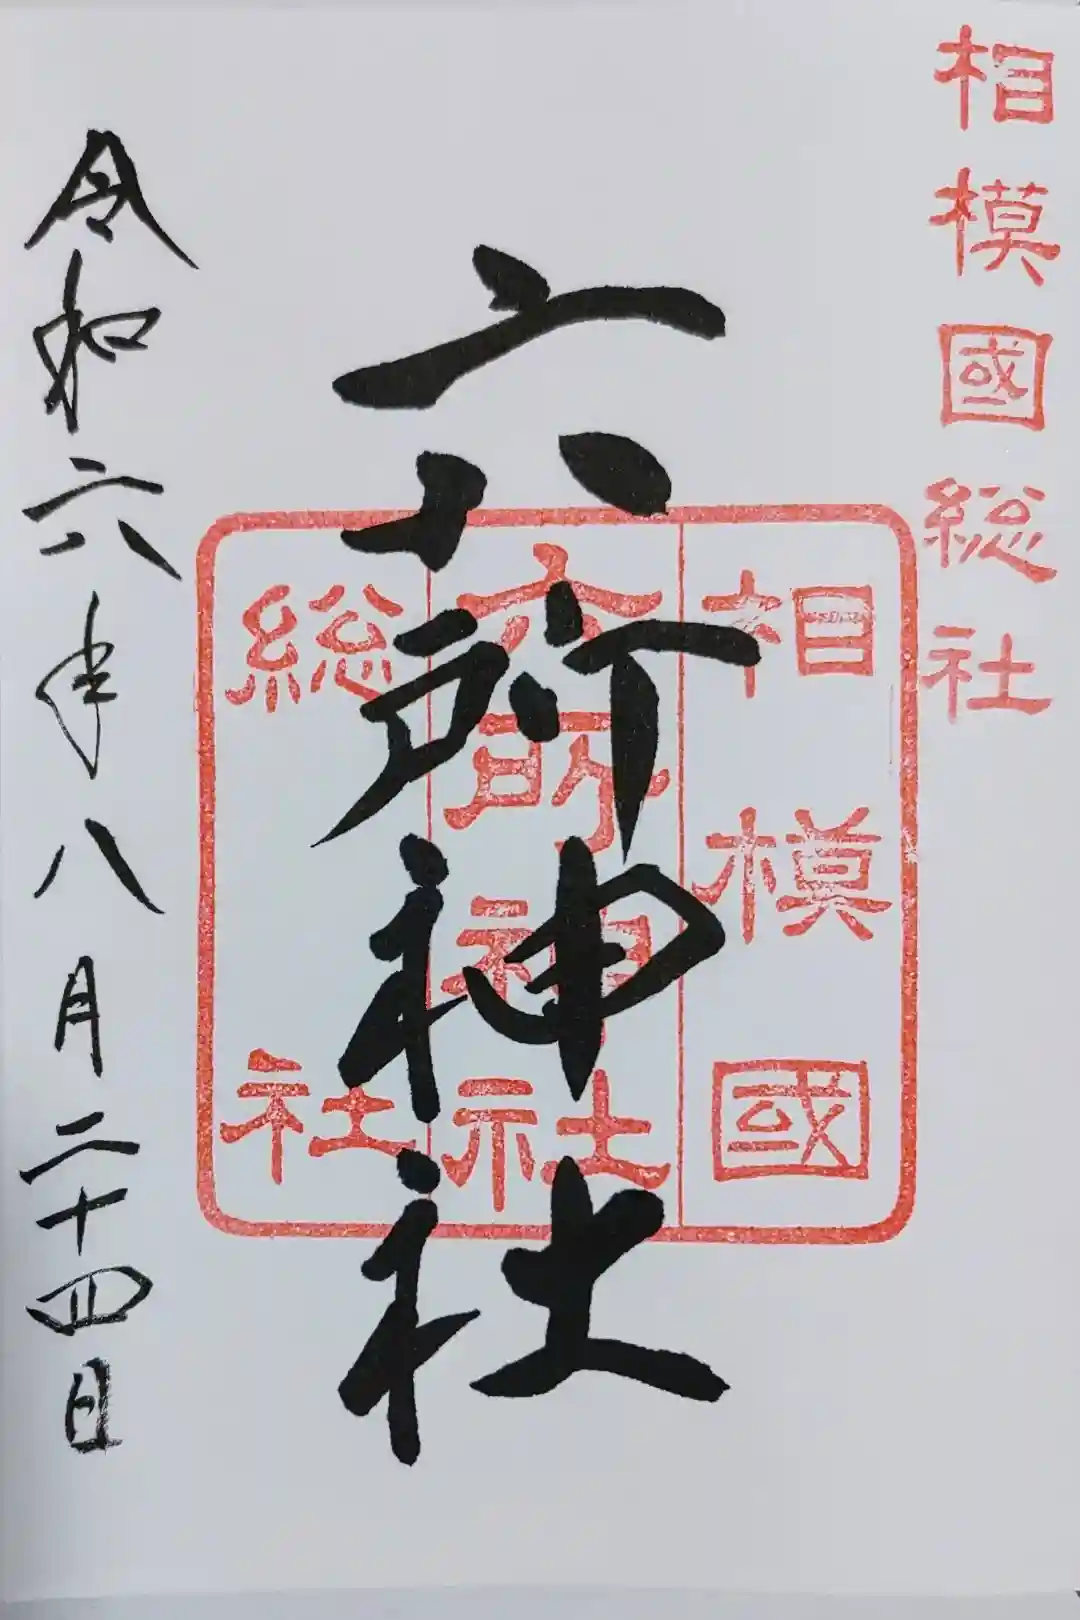 相模國総社
相模國
六所神社
総社
六所神社
令和六年八月二十四日